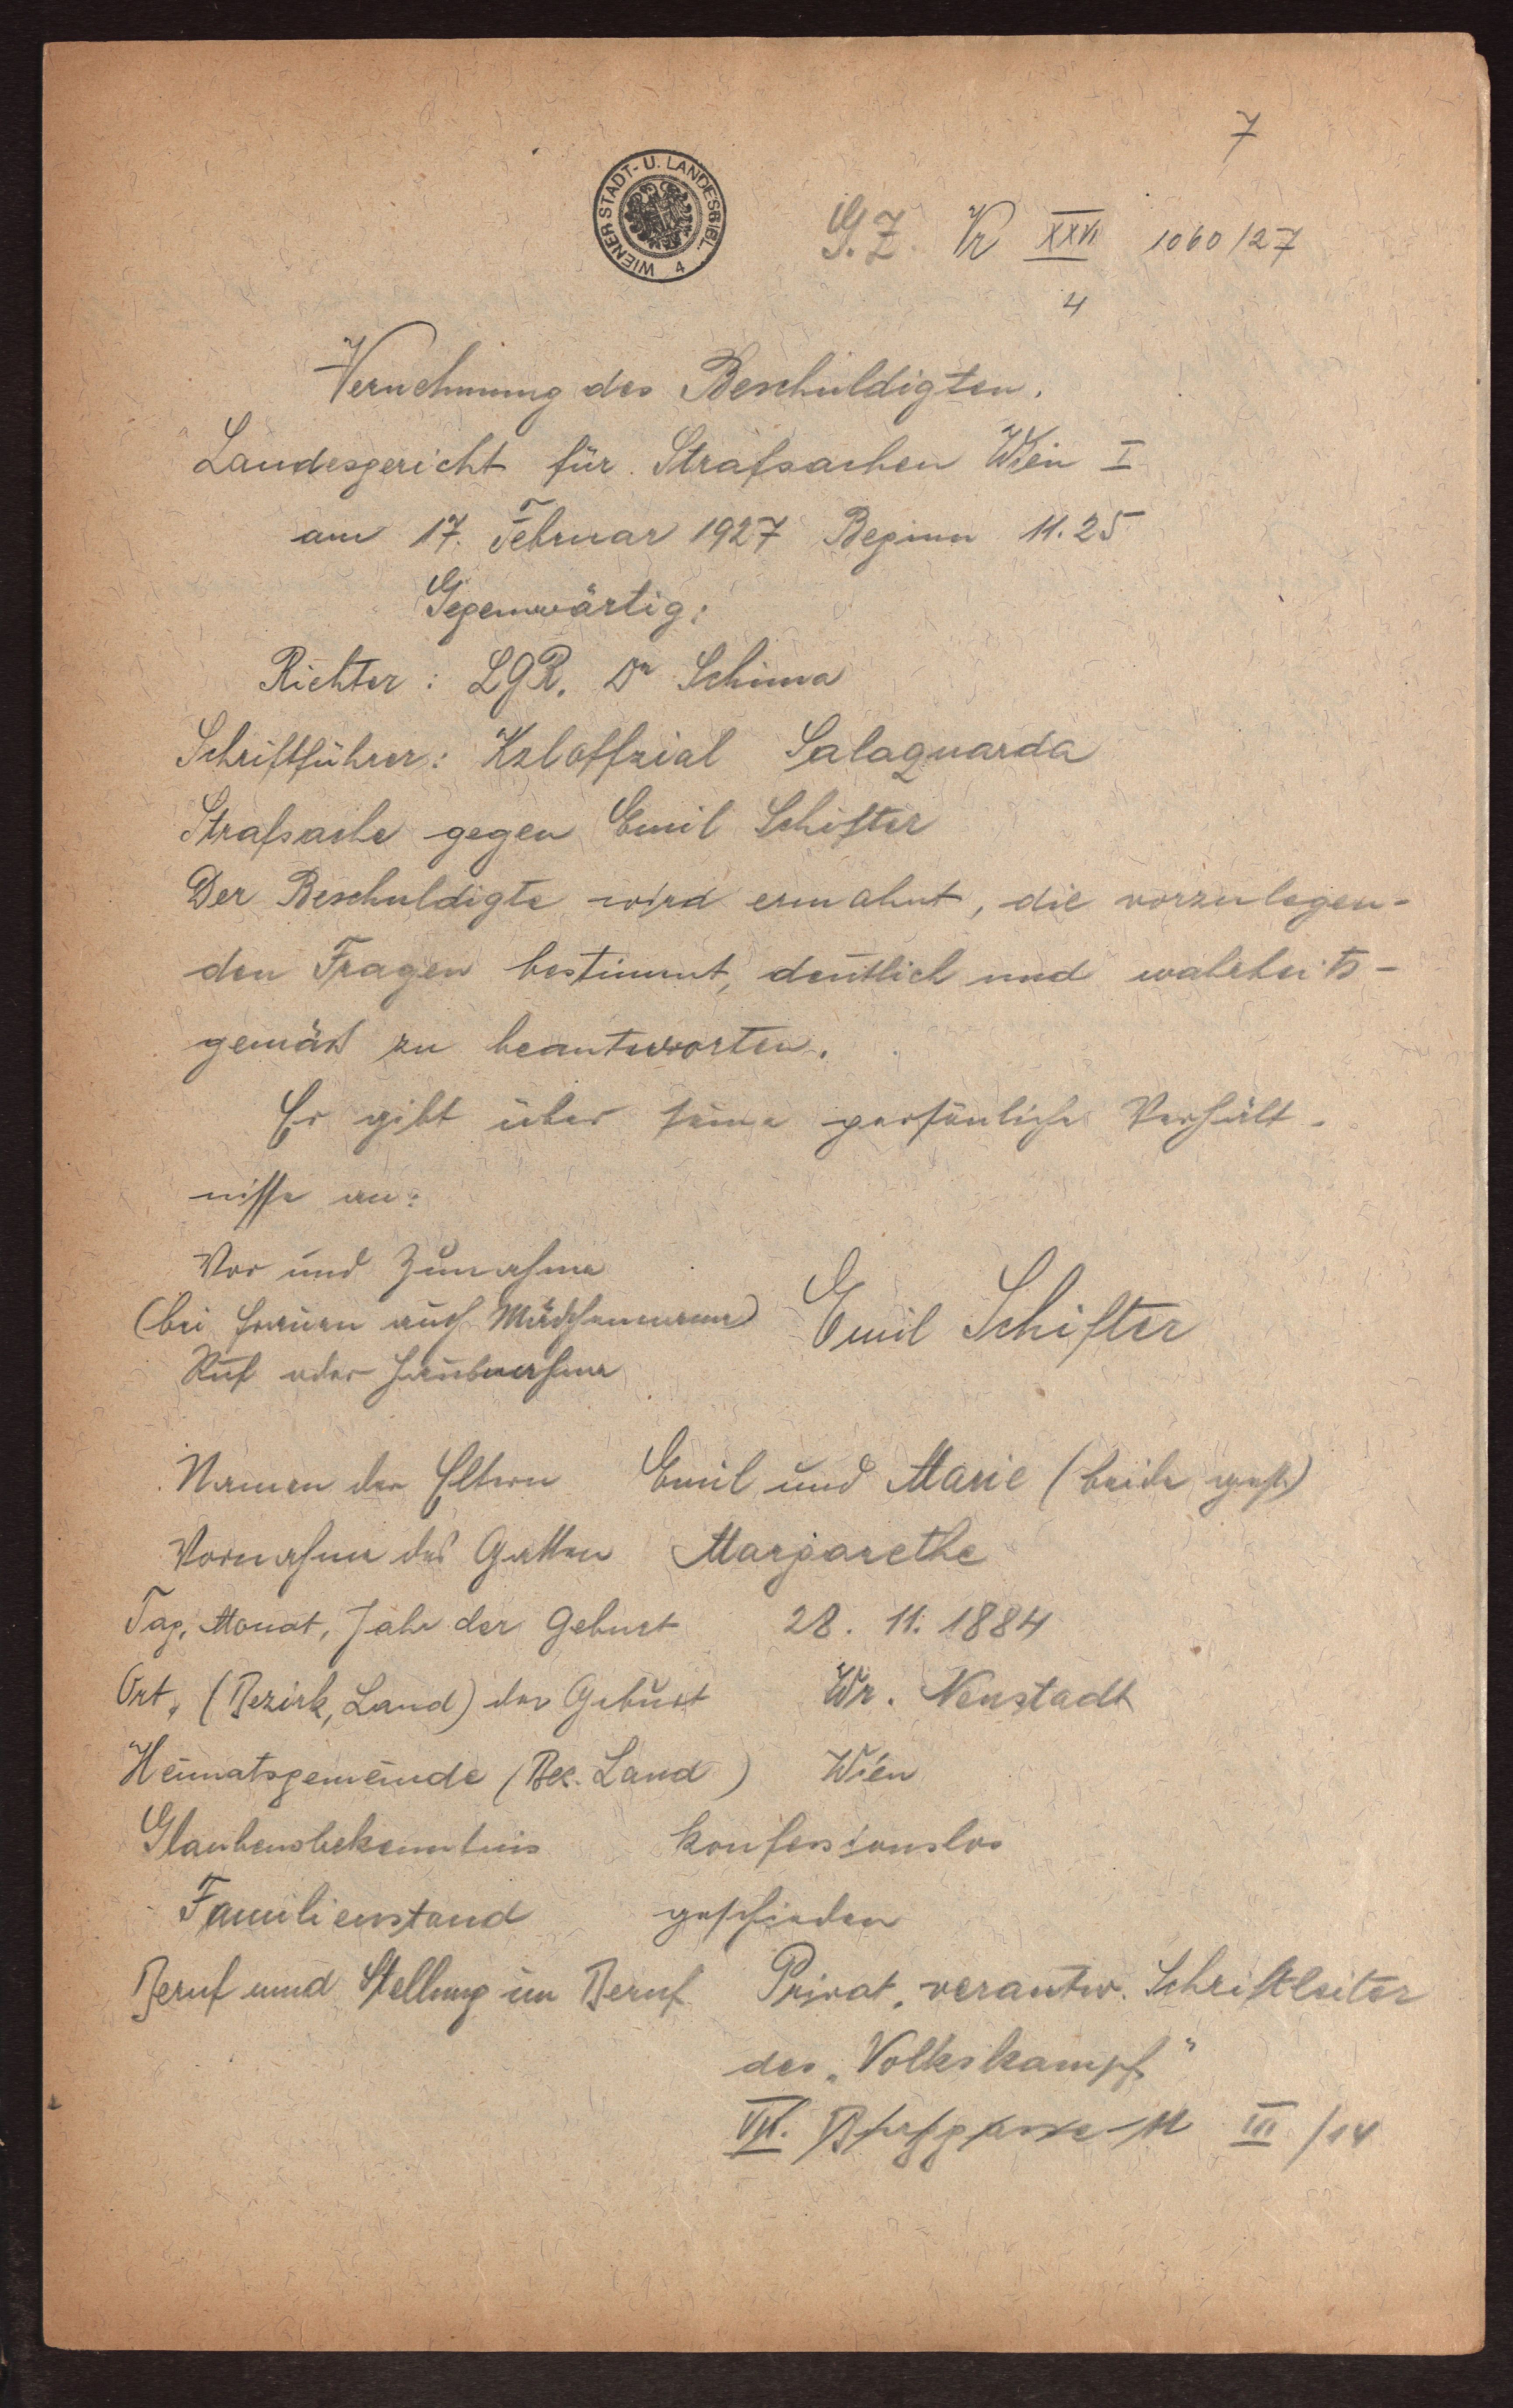 7
WIENER STADT- U. LANDESBIBL. 4
G.Z. Vr XXVI 1060/27
4
Vernehmung des Beschuldigten.
Landesgericht für Strafsachen Wien I
am 17. Februar 1927 Beginn 11.25
Gegenwärtig:
Richter: LGR. Dr Schima
Schriftführer: Kzloffzial Salaquarda
Strafsache gegen Emil Schifter
Der Beschuldigte wird ermahnt, die vorzulegen-
den Fragen bestimmt, deutlich und wahrheits-
gemäß zu beantworten.
Er gibt über seine persönliche Verhält-
nisse an:
Vor und Zunahme
(bei Frauen auch Mädchenname) Emil Schifter
Ruf oder
Namen der Eltern Emil und Marie (beide gest.)
Vornahme des Gatten Margarethe
Tag, Monat, Jahr der Geburt 28. 11. 1884
Ort, (Bezirk, Land) der Geburt Wr. Neustadt
Heimatsgemeinde (Bez. Land) Wien
Glaubensbekenntnis konfessionslos
Familienstand geschieden
Beruf und Stellung im Beruf Privat, verantw. Schriftleiter
des „Volkskampf"
VII. III/14